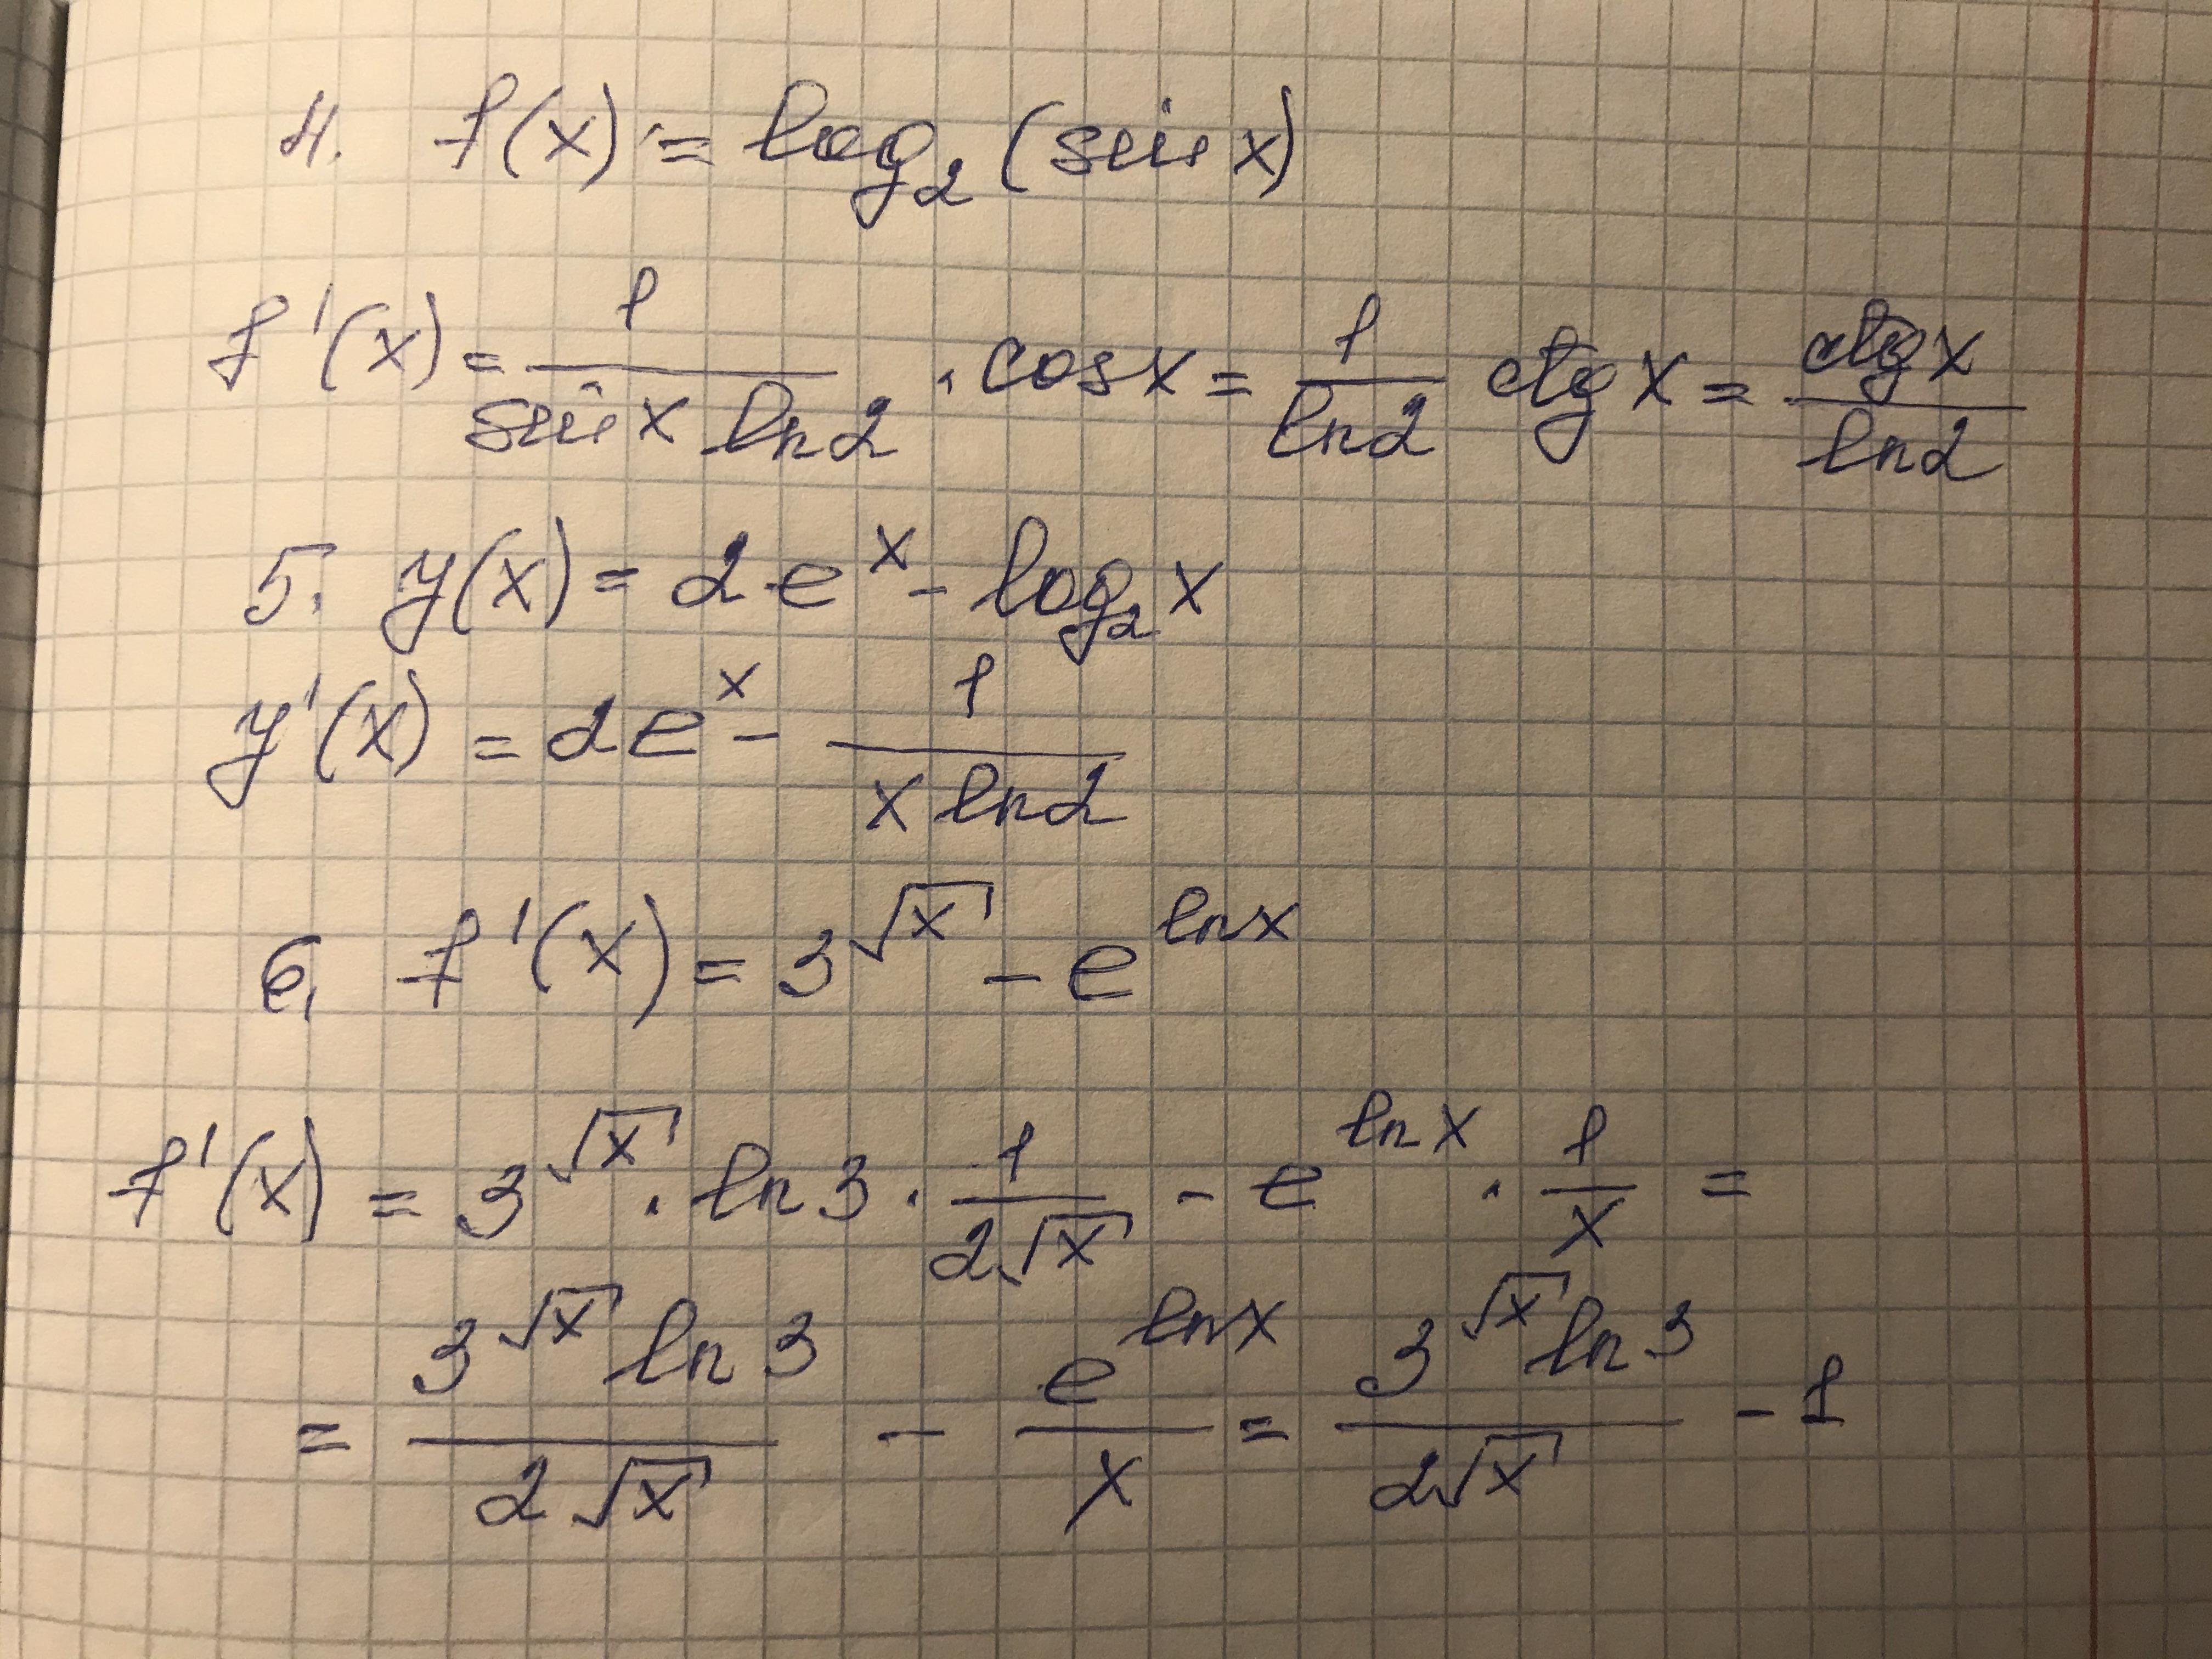 4. f(x) = log₂(sin x)
f'(x) = 1/(sin x ln2) · cos x = 1/ln2 ctg x = ctg x/ln2
5. y(x) = 2e^x - log₂x
y'(x) = 2e^x - 1/(x ln2)
6. f'(x) = 3^√x - e^(ln x)
f'(x) = 3^√x · ln3 · 1/(2√x) - e^(ln x) · 1/x =
= (3^√x ln3)/(2√x) - e^(ln x)/x = (3^√x ln3)/(2√x) - 1